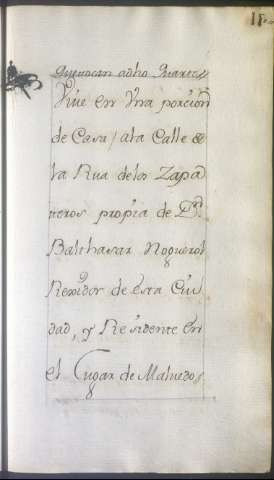 que tocan a dho Juarez
Vive en Vna porcion
de Casa / ala Calle de
la Rua delos Zapa
teros propia de Dn
Balthasar Noguerol
Rexidor de esta Ciu
dad, y Residente en
el Lugar de Maluedo